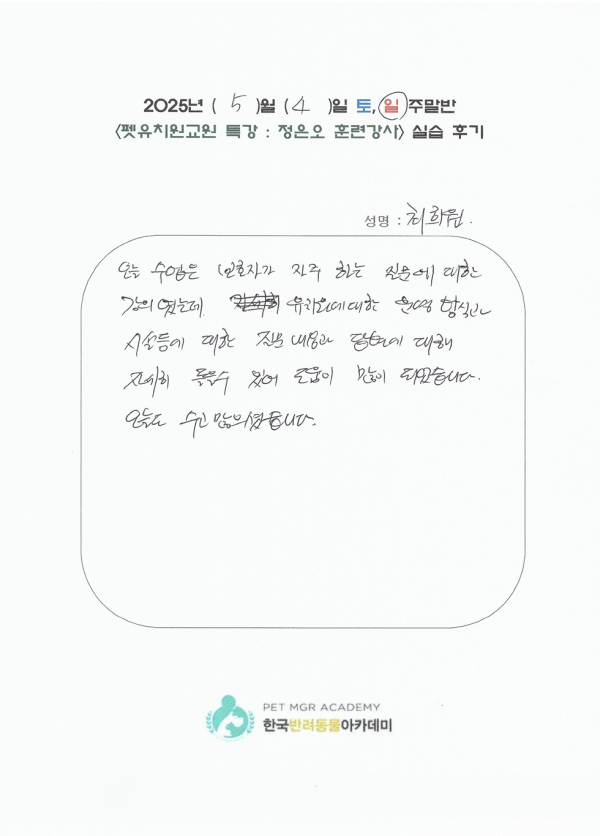 2025년 ( 5 )월 ( 4 )일 토, 일 주말반
<펫유치원교원 특강 : 정은오 훈련강사> 실습 후기
성명 : 최화원.
오늘 수업은 보호자가 자주 하는 질문에 대한
강의 였는데 유치원에대한 운영 방식과
시설등에 대한 질문 내용과 답변에 대해
자세히 들을수 있어 도움이 많이 되었습니다.
오늘도 수고 많으셨습니다.
PET MGR ACADEMY
한국반려동물아카데미